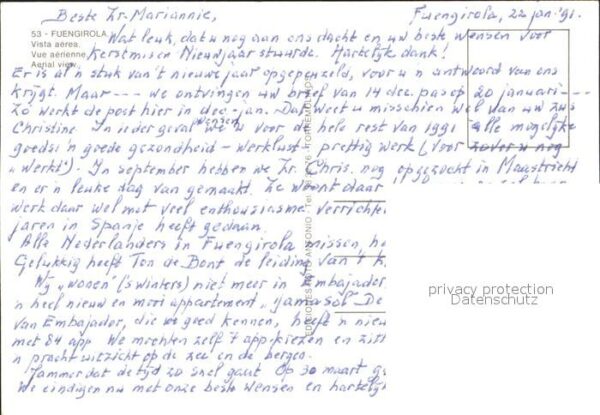 Beste Zr. Mariannie, Fuengirola, 22 jan. '91.
Wat leuk, dat u nog aan ons dacht en uw beste wensen voor
Kerstmis en Nieuwjaar stuurde. Hartelijk dank!
53 - FUENGIROLA
Vista aérea.
Vue aérienne.
Aerial view.
Er is al 'n stuk van 't nieuwe jaar opgepeuzeld, voor u 'n antwoord van ons
krijgt. Maar --- we ontvingen uw brief van 14 dec. pas op 20 januari ---
Zo werkt de post hier in dec - jan. Dat weet u misschien wel van uw zus
Christine. In ieder geval wensen we u voor de hele rest van 1991 alle mogelijke
goeds: 'n goede gezondheid - werklust - prettig werk (voor zover u nog
"werkt"). In september hebben we Zr. Chris. nog opgezocht in Maastricht
en er 'n leuke dag van gemaakt. Ze woont daar
werk daar wel met veel enthousiasme verrichten
jaren in Spanje heeft gedaan.
Alle Nederlanders in Fuengirola missen, h
Gelukkig heeft Ton de Bont de leiding van 't k
Wij "wonen" ('s winters) niet meer in Embajador
'n heel nieuw en mooi appartement "Jamasol- De
van Embajador, die we goed kennen, heeft 'n nieuw
met 84 app. We mochten zelf 't app. kiezen en zitt
'n pracht uitzicht op de zee en de bergen.
Jammer dat de tijd zo snel gaat. Op 30 maart g
We eindigen nu met onze beste wensen en hartelijk
privacy protection
Datenschutz